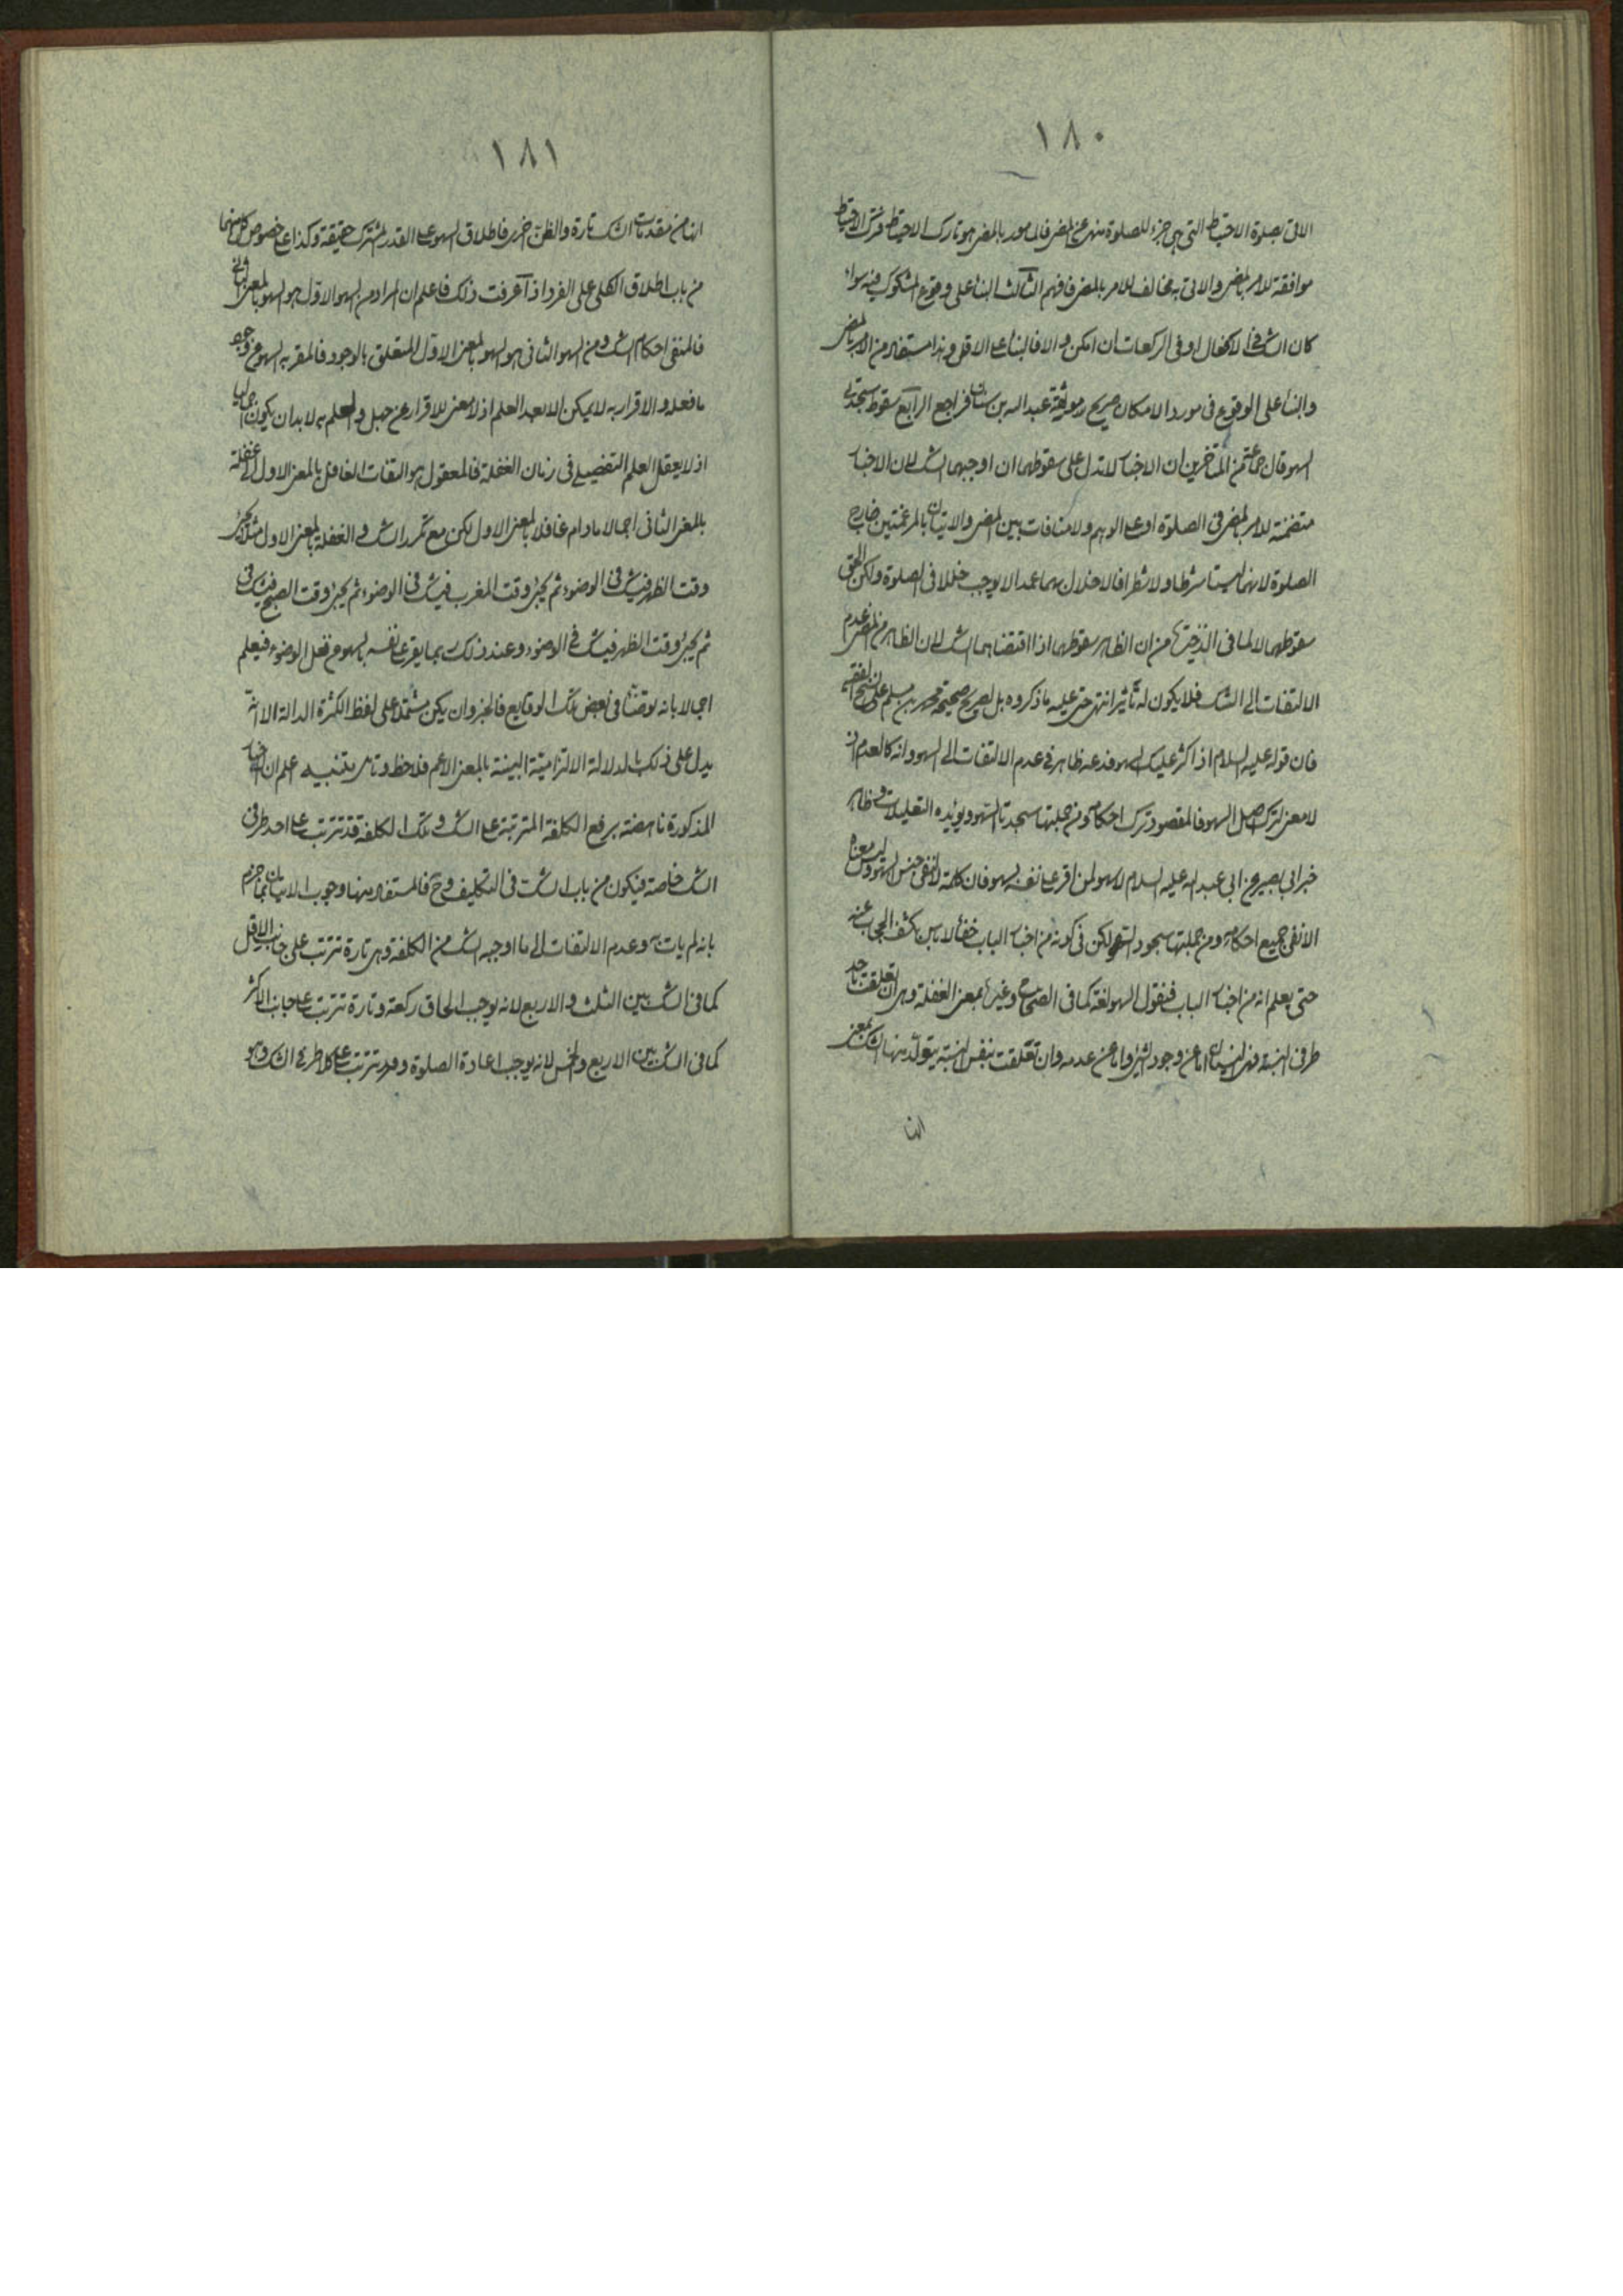 ١٨٠
الاتى بصلوة الاحتياط التى هى جزء للصلوة منهى عن المضى فالمامور بالمضى هو تارك الاحتياط فترك الاحتياط
موافقة للامر بالمضى والاتى به مخالف للامر بالمضى فافهم الثالث البناء على وقوع المشكوك فيه سواء
كان الشك فى الافعال او فى الركعات ان امكن والا فالبناء على الاقل وهذا مستفاد من الامر بالمضى
والبناء على الوقوع فى مورد الامكان صريح موثقة عبد الله بن سنان فراجع الرابع سقوط سجدتى
السهو قال جماعة من المتاخرين ان الاخبار لا تدل على سقوطهما ان اوجبهما الشك لان الاخبار
متضمنة للامر بالمضى فى الصلوة او على الوهم ولا منافات بين المضى والاتيان بالمرغمتين خارج
الصلوة لانهما ليستا شرطا ولا شطرا فالاخلال بهما عمدا لا يوجب خللا فى الصلوة ولكن الحق
سقوطهما لا لما فى الذخيرة من ان الظاهر سقوطهما اذا اقتضاهما الشك لان الظاهر من المضى عدم
الالتفات الى الشك فلا يكون له تاثير انتهى حتى عليه ما ذكروه بل لصريح صحيحة محمد بن مسلم على نسخة الفقيه
فان قوله عليه السلام اذا كثر عليك السهو فدعه ظاهر فى عدم الالتفات الى السهو وانه كالعدم اذ
لا معنى لترك اصل السهو فالمقصود ترك احكامه ومن جملتها سجدتا السهو ويؤيده التعليلات وظاهر
خبر ابى بصير عن ابى عبد الله عليه السلام لا سهو لمن اقر على نفسه بسهو فان كلمة لا لنفى جنس السهو وليس معناه
الا نفى جميع احكامه ومن جملتها سجود السهو لكن فى كونه من اخبار الباب خفاء لا باس بكشف الحجاب عنه
حتى يعلم انه من اخبار الباب فنقول السهو لغة كما فى الصحاح وغيرها بمعنى الغفلة وهى ان تعلقت باحد
طرفى النسبة فهى النسيان اما عن وجود الشئ واما عن عدمه وان تعلقت بنفس النسبة يتولد منها الشك بمعنى
انها
١٨١
انها من مقدمات الشك تارة والظن اخرى فاطلاق السهو على القدر المشترك حقيقة وكذا على خصوص كل منهما
من باب اطلاق الكلى على الفرد اذا عرفت ذلك فاعلم ان المراد من السهو الاول هو السهو بالمعنى الثانى
فالمنفى احكام الشك ومن السهو الثانى هو السهو بالمعنى الاول المتعلق بالوجود فالمقر به السهو عن وجود
ما فعله والاقرار به لا يمكن الا بعد العلم اذ لا معنى للاقرار عن جهل والعلم به لا بد ان يكون اجماليا
اذ لا يعقل العلم التفصيلى فى زمان الغفلة فالمعقول هو التفات الغافل بالمعنى الاول الى غفلته
بالمعنى الثانى اجمالا مادام غافلا بالمعنى الاول لكن مع تكرر الشك والغفلة بالمعنى الاول مثلا يجئ
وقت الظهر فيشك فى الوضوء ثم يجئ وقت المغرب فيشك فى الوضوء ثم يجئ وقت الصبح فيشك فى
ثم يجئ وقت الظهر فيشك فى الوضوء وعند ذلك ربما يقر على نفسه بالسهو عن فعل الوضوء فيعلم
اجمالا بانه توضأ فى بعض تلك الوقايع فالخبر وان لم يكن مشتملا على لفظ الكثرة الدالة الا انه
يدل على ذلك بالدلالة الالتزامية البينة بالمعنى الاعم فلاحظ وتامل تنبيه اعلم ان الاخبار
المذكورة ناهضة برفع الكلفة المترتبة على الشك وتلك الكلفة قد تترتب على احد طرفى
الشك خاصة فيكون من باب الشك فى التكليف وح فالمستفاد منها وجوب الاتيان بما جزم
بانه لم يات به وعدم الالتفات الى ما اوجبه الشك من الكلفة وهى تارة تترتب على جانب الاقل
كما فى الشك بين الثلث والاربع لانه يوجب الحاق ركعة وتارة تترتب على جانب الاكثر
كما فى الشك بين الاربع والخمس لانه يوجب اعادة الصلوة وقد تترتب على كلا طرفى الشك وهو